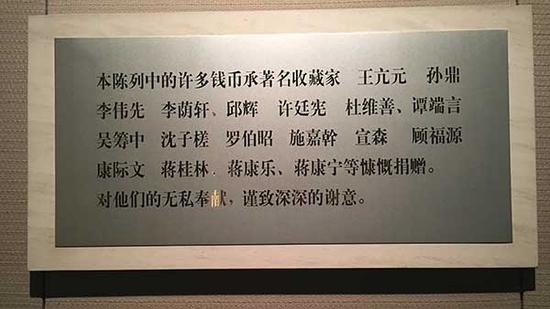 本陈列中的许多钱币承著名收藏家 王亢元 孙鼎
李伟先 李荫轩、邱辉 许廷宪 杜维善、谭端言
吴筹中 沈子槎 罗伯昭 施嘉幹 宣森 顾福源
康际文 蒋桂林、蒋康乐、蒋康宁等慷慨捐赠。
对他们的无私奉献，谨致深深的谢意。